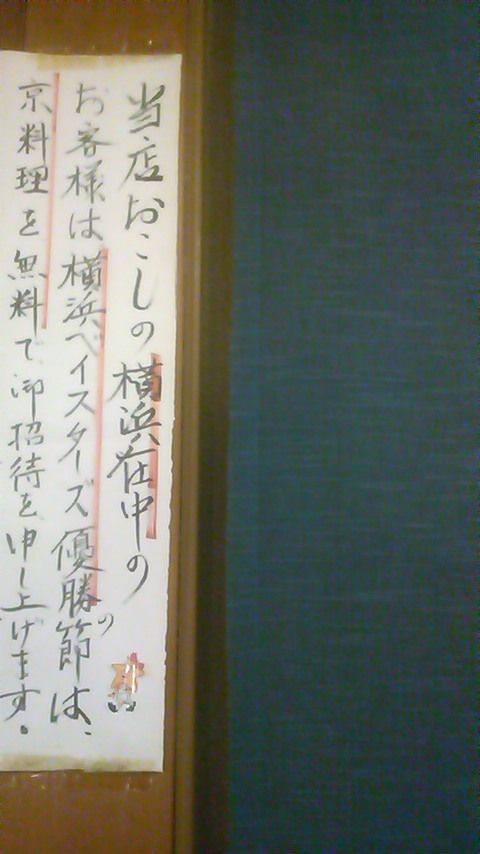 当店おこしの横浜在中の
お客様は横浜ベイスターズ優勝の節は、
京料理を無料で御招待を申し上げます。